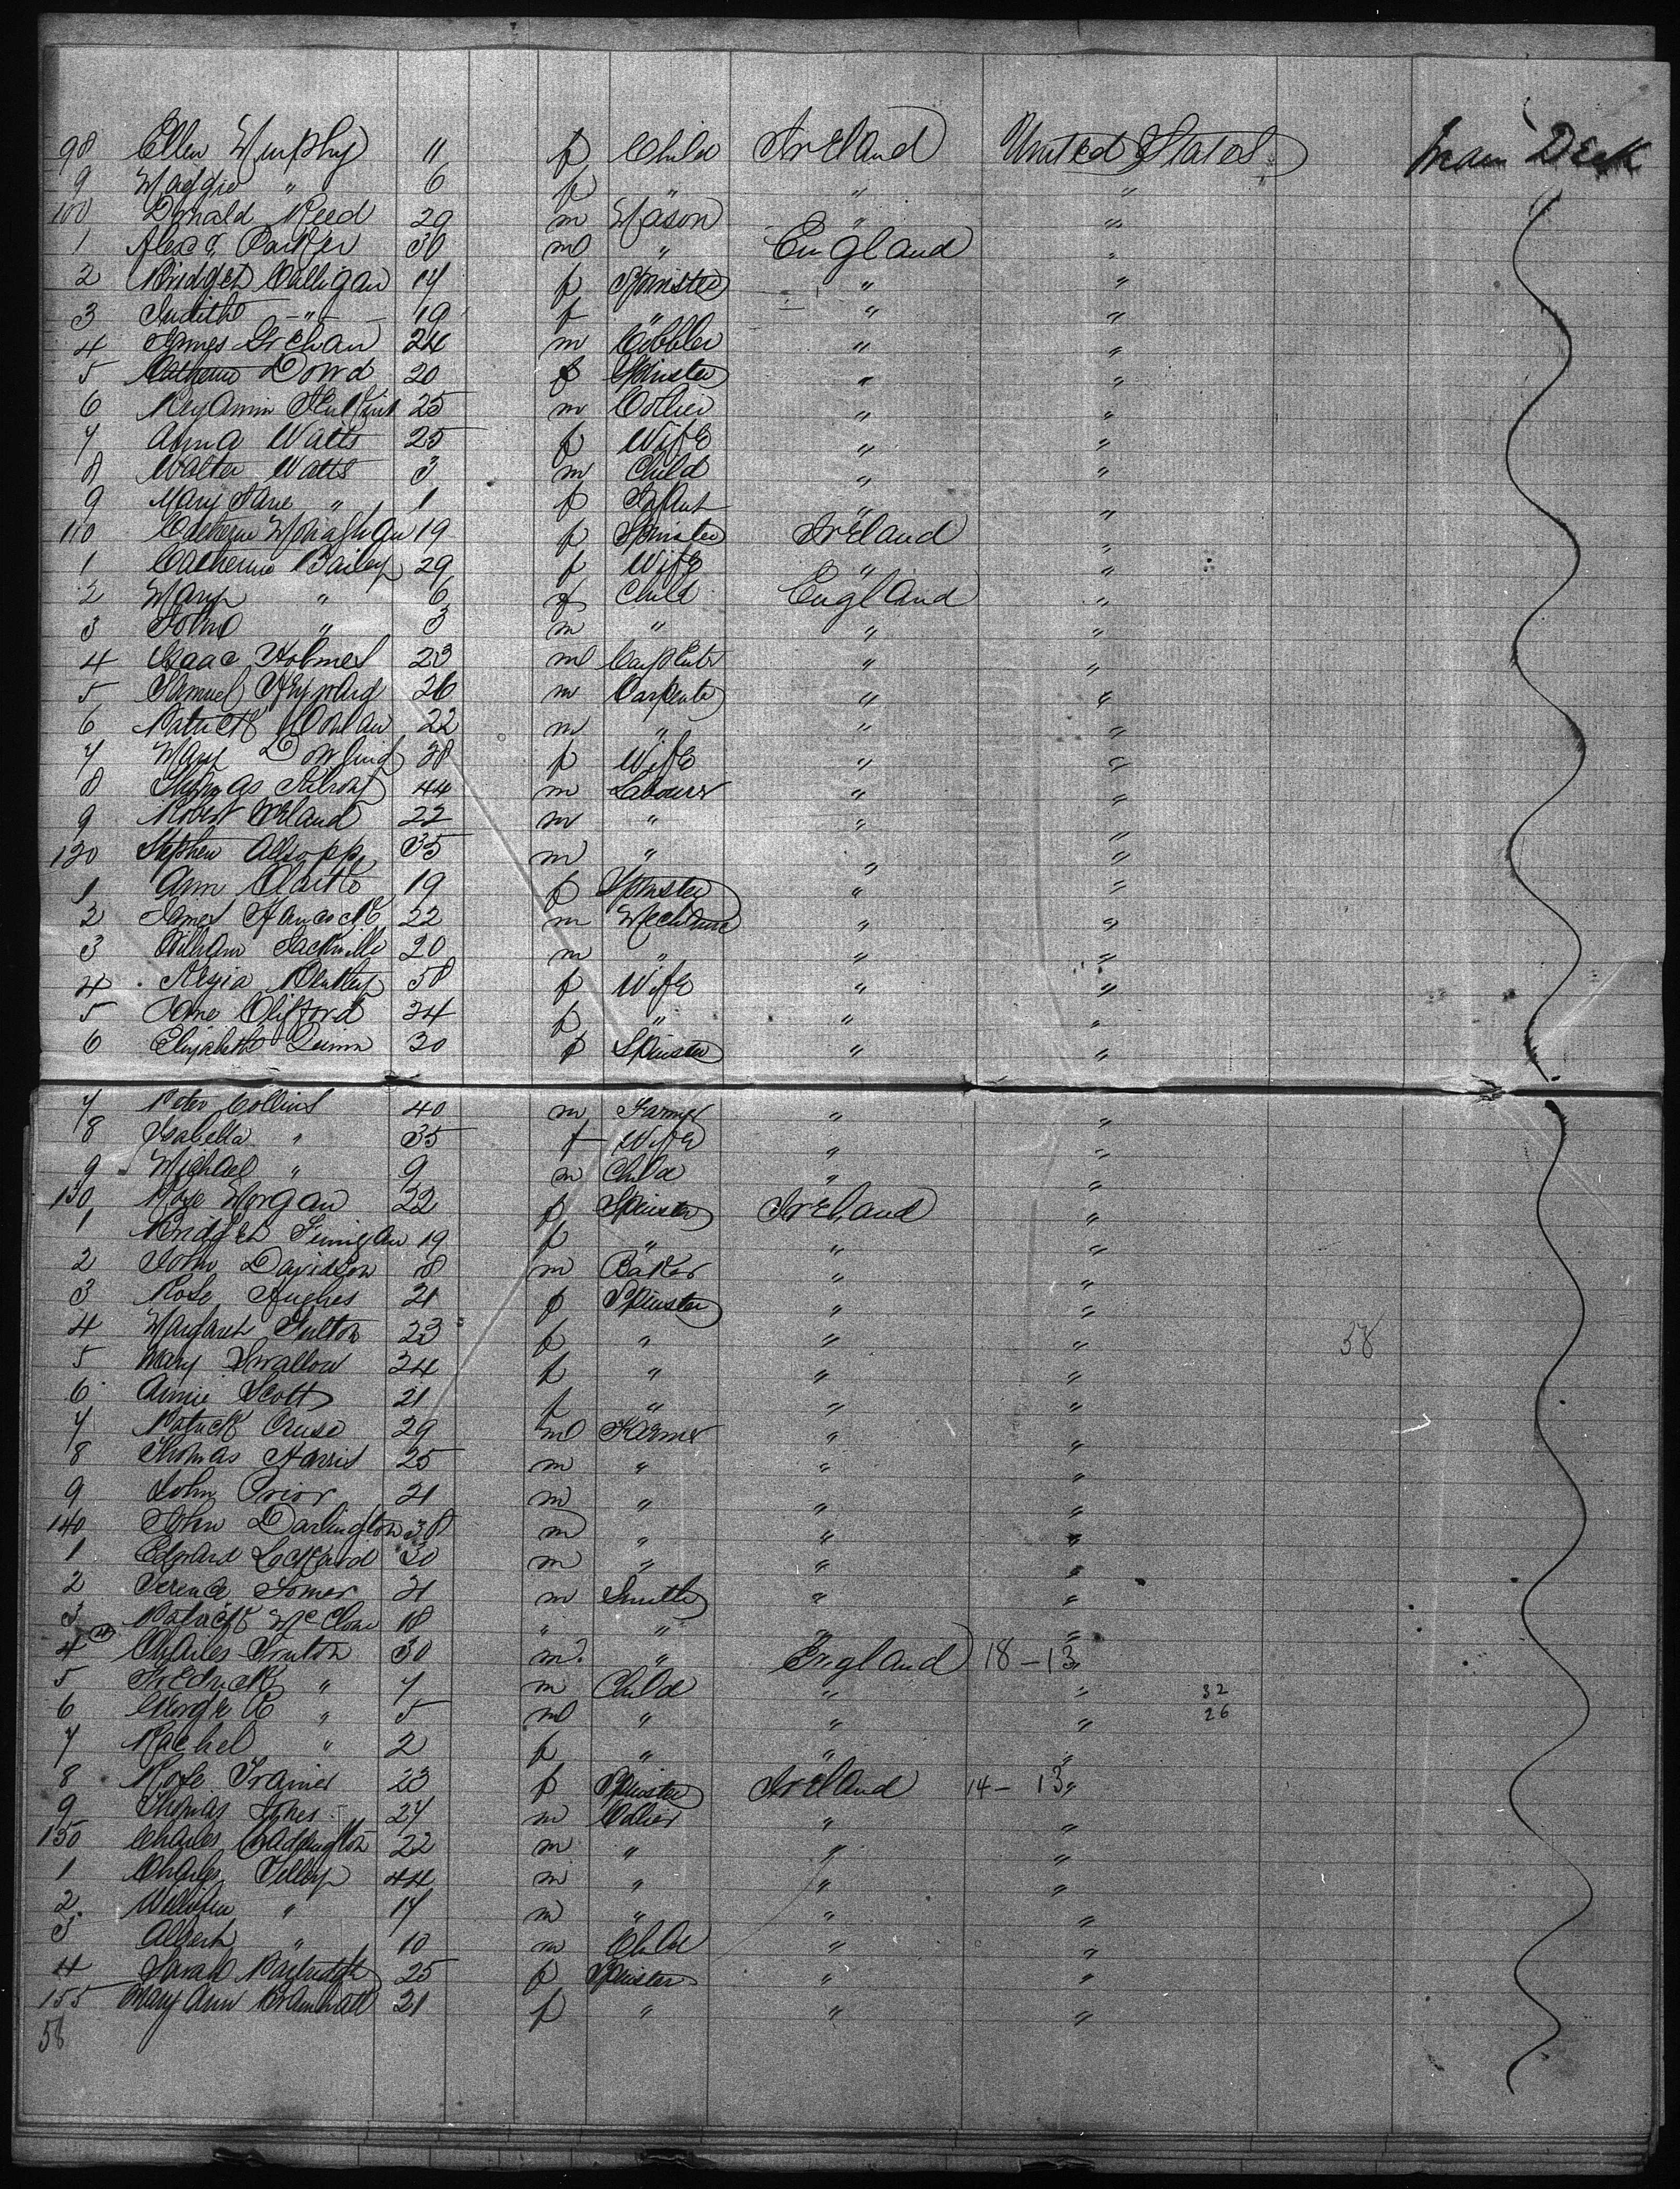 98 Ellen Murphy 11 f Child Ireland United States Main Deck
9 Maggie " 6 f " " "
100 Donald Reed 29 m Mason " "
1 Alexr Parker 30 m " England "
2 Bridget Calligan 14 f Spinster " "
3 Judith " 19 f " " "
4 James 24 m Cobbler " "
5 Catherine Dowd 20 f Spinster " "
6 Benjamin 25 m Collier " "
7 Anna Watts 25 f Wife " "
8 Walter Watts 3 m Child " "
9 Mary Jane " 1 f Infant " "
110 Catherine Monaghan 19 f Spinster Ireland "
1 Catherine Bailey 29 f Wife " "
2 Mary " 6 f Child England "
3 John " 3 m " " "
4 Isaac Holmes 23 m Carpenter " "
5 Samuel Heyward 26 m Carpenter " "
6 Patrick Conlan 22 m " " "
7 Mary Dowling 28 f Wife " "
8 Thomas 44 m Labourer " "
9 Robert Ireland 22 m " " "
120 Stephen Allsopp 35 m " " "
1 Ann 19 f Spinster " "
2 James Hancock 22 m Mechanic " "
3 William Sackville 20 m " " "
4 Bentley 58 f Wife " "
5 Jane Clifford 24 f " " "
6 Elizabeth Quinn 20 f Spinster " "
7 Peter Collins 40 m Farmer " "
8 Isabella " 35 f Wife " "
9 Michael " 9 m Child " "
130 Rose Morgan 22 f Spinster Ireland "
1 Bridget Finnigan 19 f " " "
2 John Davidson 18 m Baker " "
3 Rose Hughes 21 f Spinster " "
4 Margaret Fulton 23 f " " " 38
5 Mary Swallow 24 f " " "
6 Annie Scott 21 f " " "
7 Patrick Cruse 29 m Farmer " "
8 Thomas Harris 25 m " " "
9 John Prior 21 m " " "
140 John Darlington 38 m " " "
1 Edward Lockard 30 m " " "
2 Terence Somer 21 m Smith " "
3 Patrick McCloue 18 " " " "
4 Charles 30 m " England 18-13 "
5 Fredrick " 7 m Child " " 32
6 George R " 5 m " " " 26
7 Rachel " 2 f " " "
8 Rose Trainer 23 f Spinster Ireland 14-13 "
9 Thomas Jones 27 m Collier " "
150 Charles Waddington 22 m " " "
1 Charles Tilley 44 m " " "
2 William " 17 m " " "
3 Albert " 10 m Child " "
4 Sarah 25 f Spinster " "
155 Mary Ann Bramhall 21 f " " "
58